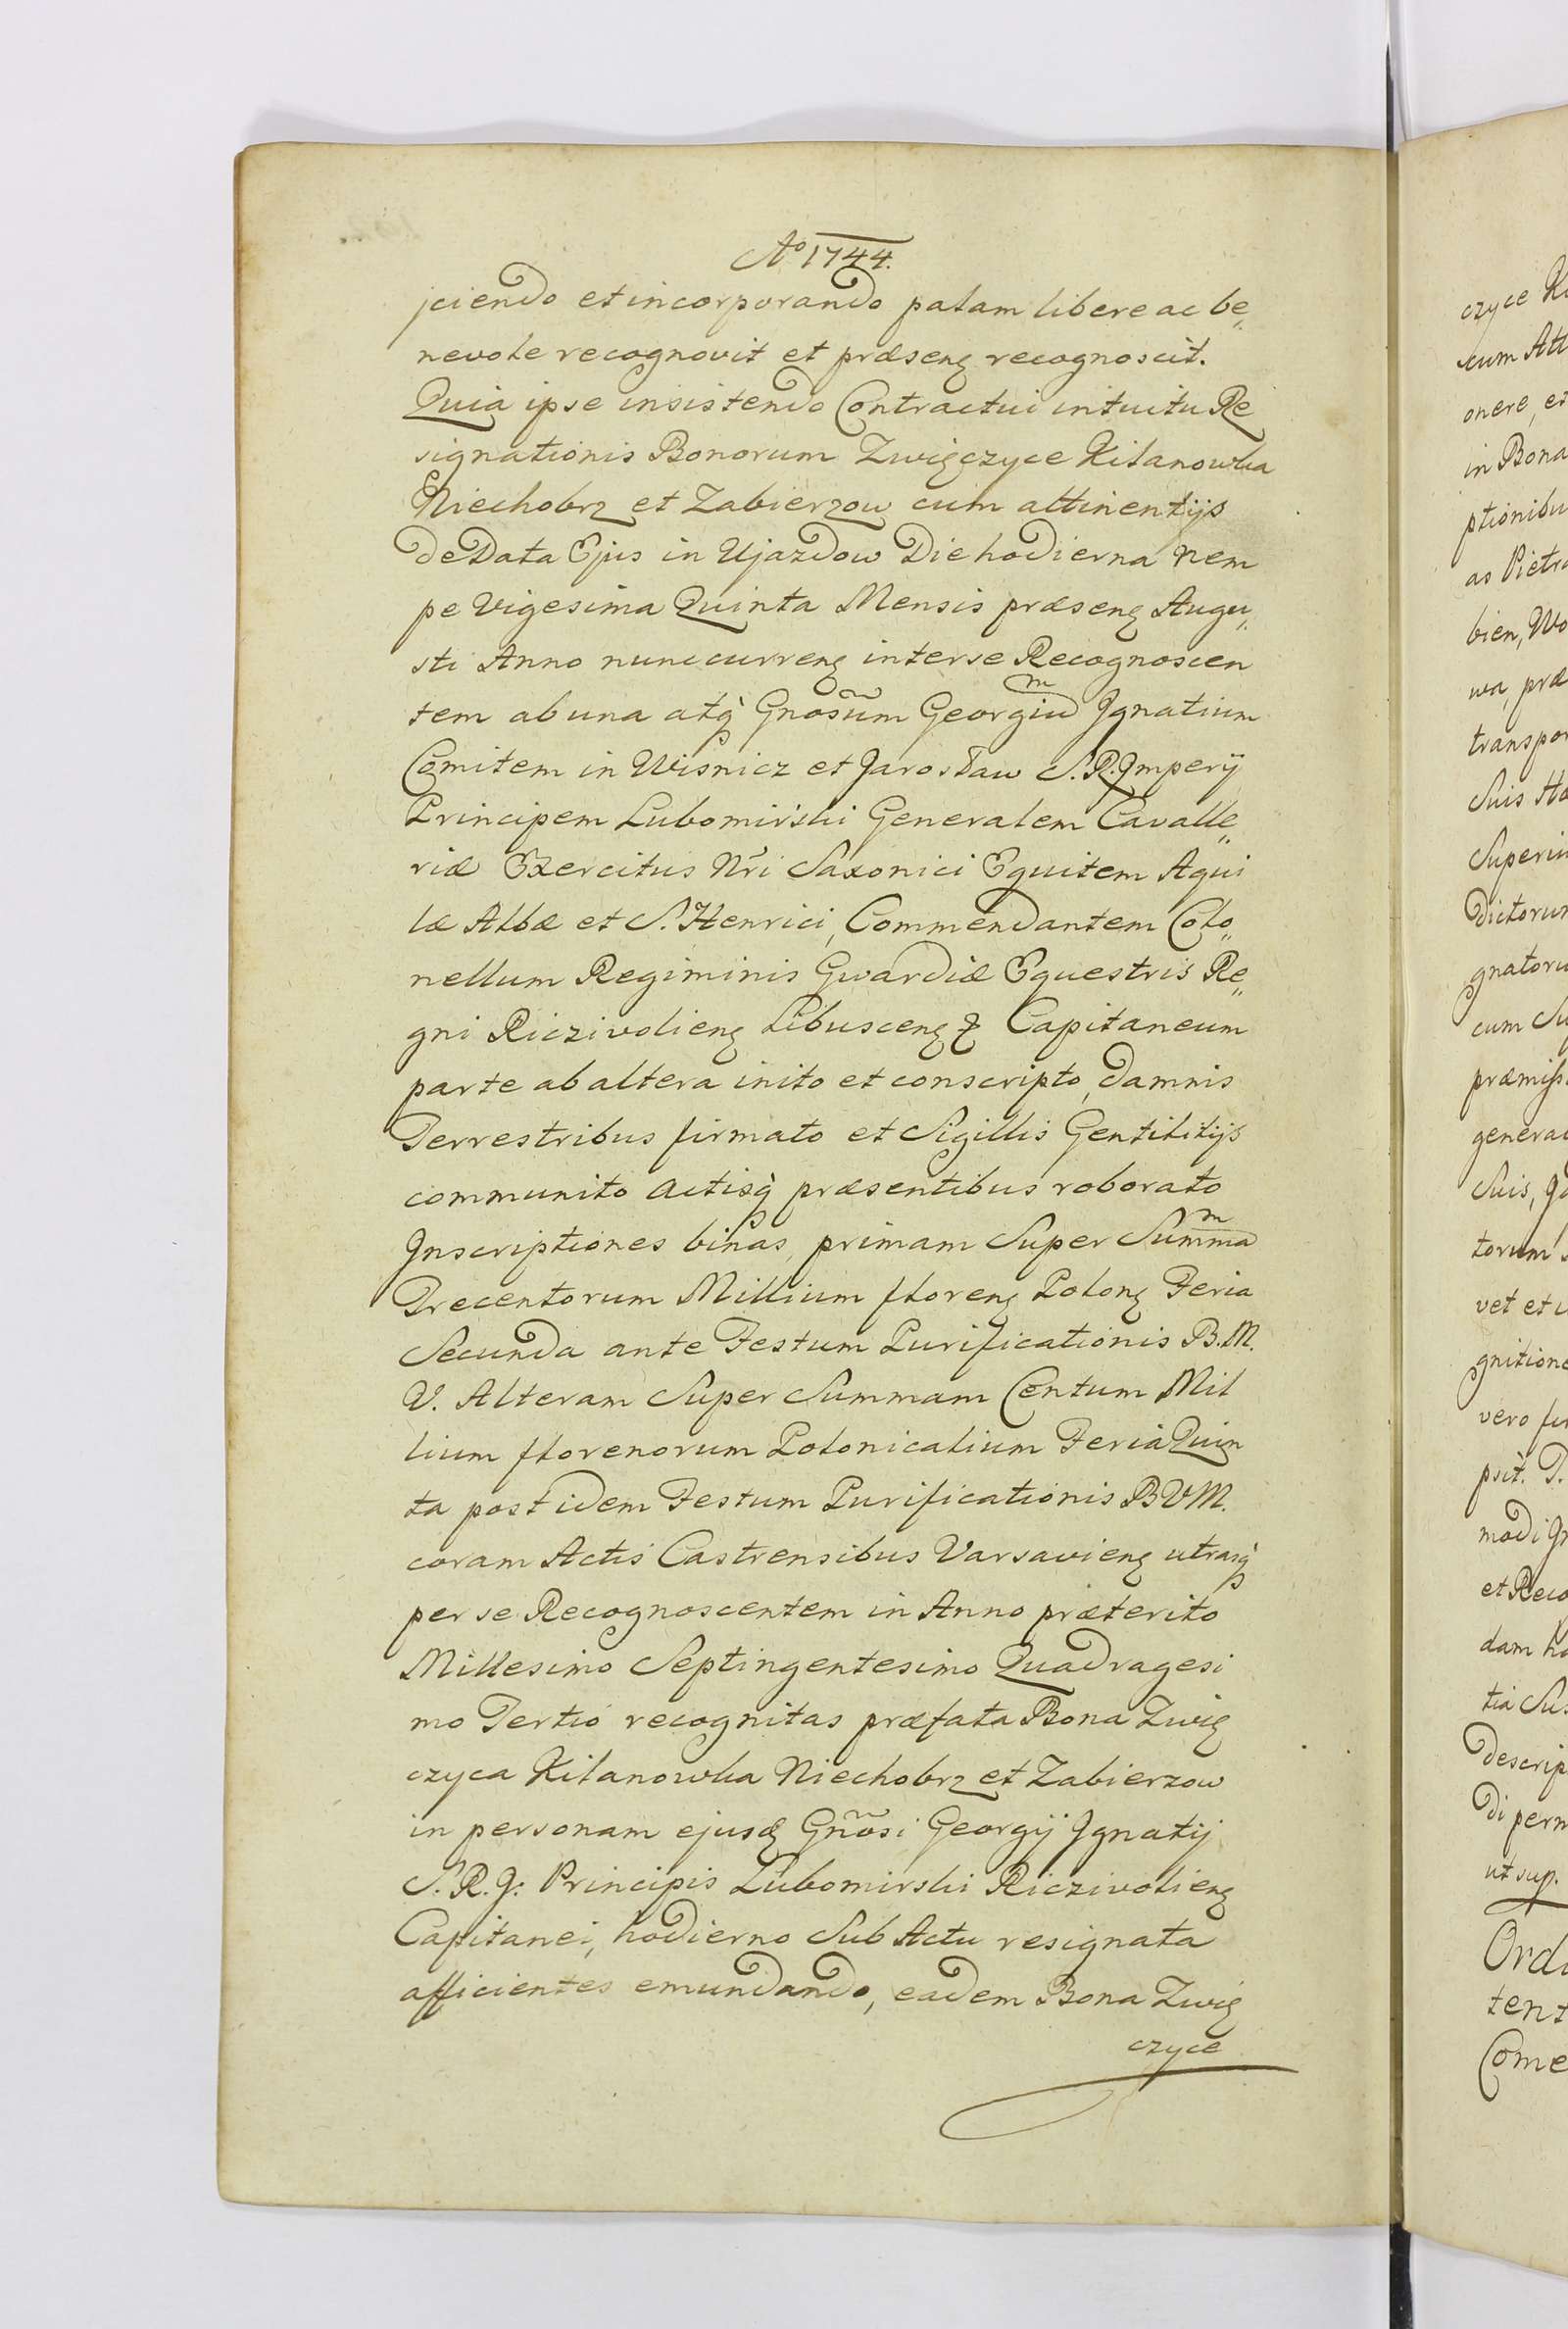 Aº 1744.
jciendo et incorporando palam libere ac be„
nevole recognovit et præsenʒ recognoscit.
Quia ipse insistendo Contractui intuitu Re
signationis Bonorum Zwięczyce Kilanowka
Niechobrz et Zabierzow cum attinentijs
de Data Ejus in Ujazdow Die hodierna nem
pe Vigesima Quinta Mensis præsenʒ Augu„
sti Anno nunc currenʒ inter se Recognoscen
tem ab una atq̀ Gnosũm Georgiũ Ignatium
Comitem in Wisnicz et Jarosław S.R. Imperij
Principem Lubomirski Generalem Cavalle„
riæ Exercitus Nr̃i Saxonici Equitem Aqui
læ Albæ et S. Henrici, Commendantem Colo„
nellum Regiminis Gwardiæ Equestris Re„
gni Riczivolienʒ Libuscenʒ ꝛ Capitaneum
parte ab altera inito et conscripto, damnis
Terrestribus firmato et Sigillis Gentilitijs
communito actisq̀ præsentibus roborato
Inscriptiones binas, primam Super Summam
Trecentorum Millium florenʒ Polonʒ Feria
Secunda ante Festum Purificationis B.M.
V. Alteram Super Summam Centum Mil
lium florenorum Polonicalium Feria Quin
ta post idem Festum Purificationis BVM.
coram Actis Castrensibus Varsavienʒ utrasq̀
per se Recognoscentem in Anno præterito
Millesimo Septingentesimo Quadragesi
mo Tertio recognitas præfata Bona Zwię
czyca Kilanowka Niechobrz et Zabierzow
in personam ejusdʒ Gñosi Georgij Ignatij
S. R. J: Principis Lubomirski Riczivolienʒ
Capitanei, hodierno Sub Actu resignata
afficientes emundando, eadem Bona Zwię
czyce
czyce Ki
cum Att
onere, et
in Bona
ptionibu
as Pietra
bien, Wo
wa, præ
transpor
Suis Hæ
Superin
dictorum
gnatoru
cum Su
præmiss
generac
Suis,
torum
vet et
gnitione
vero
psit. T.
modi In
et Reco
dam ha
tia Sus
descrip
di perm
ut sup.
Ordi
tent
Come